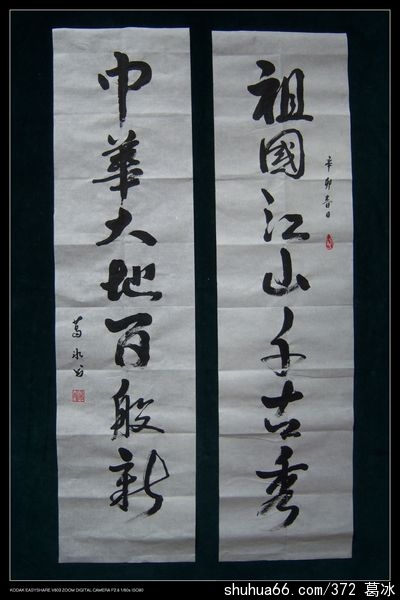 祖國江山千古秀
辛卯春日
中華大地百般新
葛冰書
KODAK EASYSHARE V803 ZOOM DIGITAL CAMERA F2.8 1/60s ISO80
shuhua66.com/372 葛冰